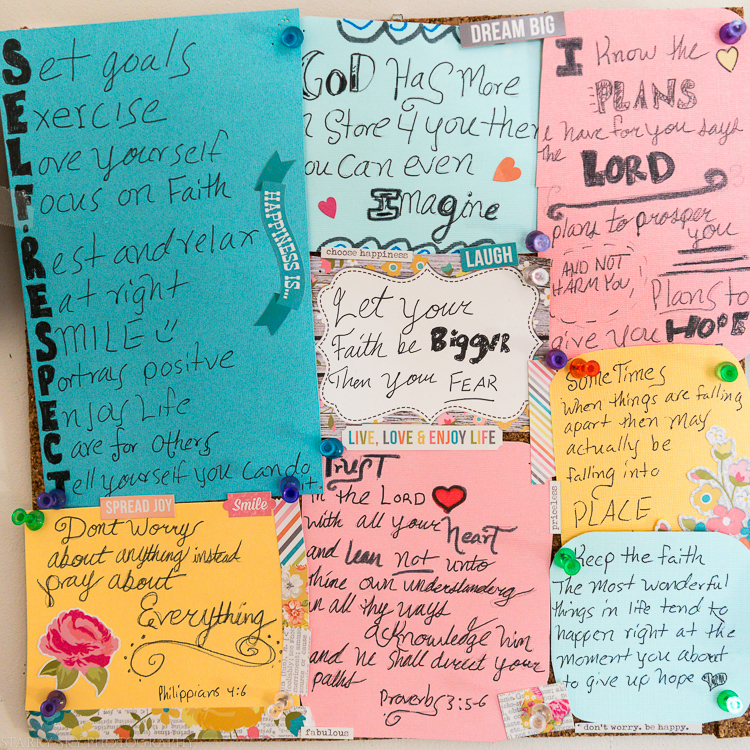 Set goals
Exercise
Love yourself
Focus on Faith
Rest and relax
Eat right
SMILE
Portrays positive
Enjoy Life
Care for others
Tell yourself you can do it.
HAPPINESS IS...
DREAM BIG
GOD Has More
n Store 4 you then
ou Can even
Imagine
I Know the
PLANS
I have for you says
the LORD
plans to prosper
you
AND NOT
HARM YOU,
Plans to
give you HOPE
choose happiness
LAUGH
Let your
Faith be BIGGER
Then your FEAR
LIVE, LOVE & ENJOY LIFE
SomeTimes
when things are falling
apart then may
actually be
falling into
PLACE
priceless
SPREAD JOY
Smile
Dont worry
about anything instead
pray about
Everything
Philippians 4:6
Trust
in the LORD
with all your heart
and lean not unto
thine own understanding
in all thy ways
acknowledge him
and he shall direct your
paths
Proverbs 3:5-6
fabulous
Keep the faith
The most wonderful
things in life tend to
happen right at the
moment you about
to give up hope
don't worry. be happy.